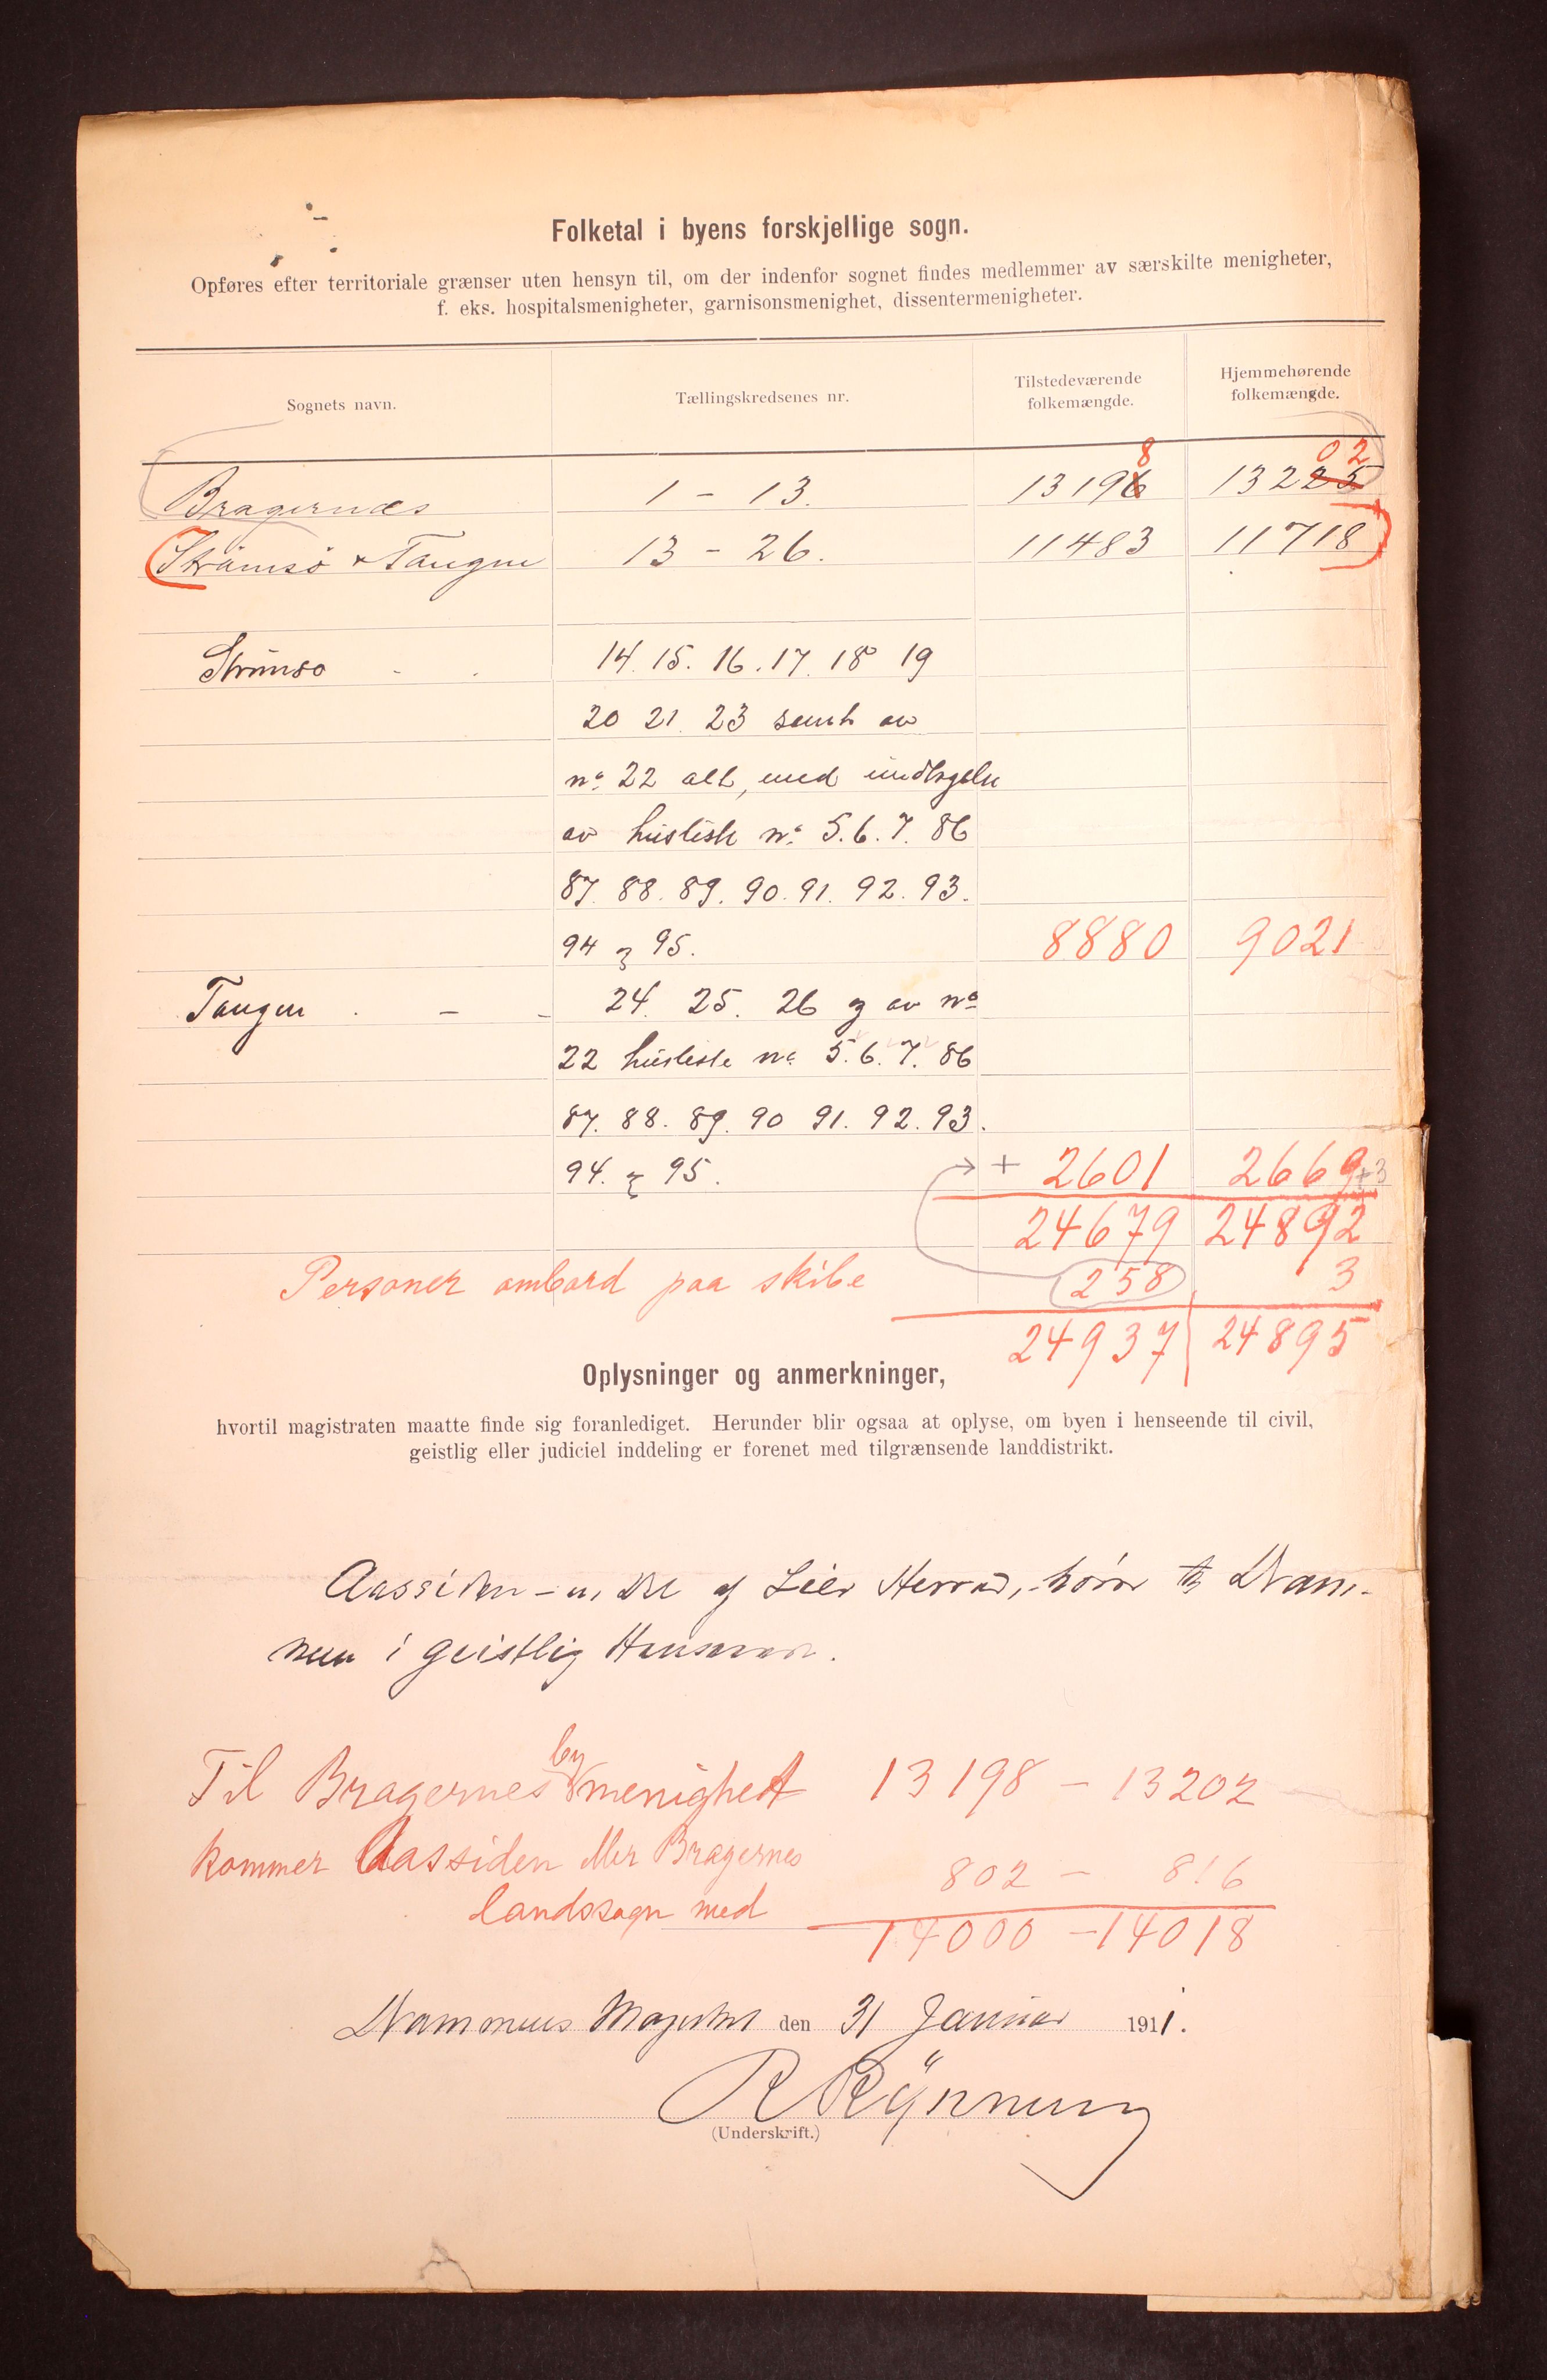 Folketal i byens forskjellige sogn.
Opføres efter territoriale grænser uten hensyn til, om der indenfor sognet findes medlemmer av særskilte menigheter,
f. eks. hospitalsmenigheter, garnisonsmenighet, dissentermenigheter.
Sognets navn. Tællingskredsenes nr. Tilstedeværende folkemængde. Hjemmehørende folkemængde.
8 02
Bragernæs 1 - 13. 13196 13225
Strömsö & Tangen 13 - 26. 11483 11718
Strömsö - . 14. 15. 16. 17. 18 19
20 21. 23 samt av
no 22 alt, med undtagelse
av husliste no 5. 6. 7. 86
87. 88. 89. 90. 91. 92. 93.
94 og 95. 8880 9021
Tangen . - - 24. 25. 26 og av no
22 husliste no 5. 6. 7. 86
87. 88. 89. 90 91. 92. 93.
94. og 95. + 2601 2669 +3
24679 24892
Personer ombord paa skibe 258 3
24937 24895
Oplysninger og anmerkninger,
hvortil magistraten maatte finde sig foranlediget. Herunder blir ogsaa at oplyse, om byen i henseende til civil,
geistlig eller judiciel inddeling er forenet med tilgrænsende landdistrikt.
Aassiden - en Del af Lier Herred, - hører til Dram-
men i geistlig Henseende.
Til Bragernes bymenighet 13198 - 13202
kommer Aassiden eller Bragernes 802 - 816
landssogn med
14000 - 14018
Drammens Magistrat den 31 Januar 1911.
(Underskrift.)